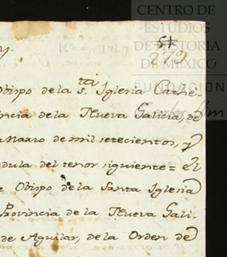 CENTRO DE
ESTUDIOS
DE HISTORIA
DE MEXICO
FUNDACION
Obispo de la s.ta Iglesia
incia de la Nueva Galicia, de
Marzo de mil setecientos, y
edula del tenor siguiente = el
e Obispo de la Santa Iglesia
Provincia de la Nueva Gali-
de Aguilar, de la Orden de